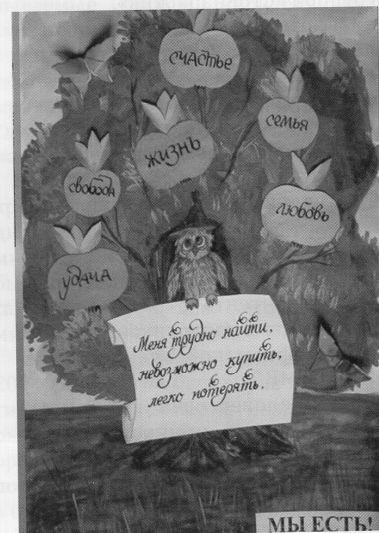 счастье
семья
жизнь
свобода
любовь
удача
Меня трудно найти,
невозможно купить,
легко потерять.
МЫ ЕСТЬ!